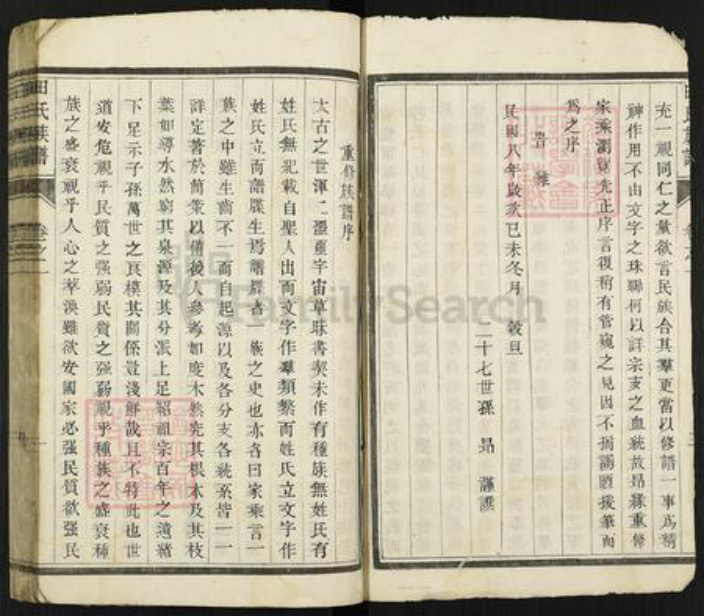 充一視同仁之量欲言民族合其羣更當以修譜一事為精
神作用不由文字之珠聯何以詳宗支之血統故昂緣重修
家乘瀏覽先正序言復稍有管窺之見因不揣謭陋援筆而
為之序
民國八年歲次己未冬月 穀旦
二十七世孫 昂 謹譔
田氏族譜
卷之一
重修族譜序
太古之世渾渾噩噩宇宙草昧書契未作有種族無姓氏有
姓氏無記載自聖人出而文字作羣類繁而姓氏立文字作
姓氏立而譜牒生焉譜牒者一族之史也亦名曰家乘言一
族之中雖生齒不一而自起源以及各分支各統系皆一一
詳定著於簡策以備後人參考如度木然究其根本及其枝
葉如導水然窮其泉源及其分派上足紹祖宗百年之遺緒
下足示子孫萬世之良模其關係豈淺鮮哉且不特此也世
道安危視乎民質之强弱民質之强弱視乎種族之盛衰種
族之盛衰視乎人心之萃渙雖欲安國家必强民質欲强民
FamilySearch